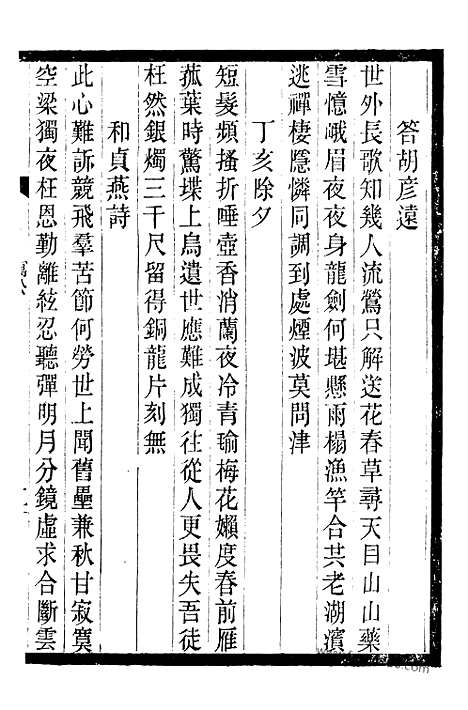 答胡彥遠
世外長歌知幾人流鶯只解送花春草尋天目山山藥
雪憶峨眉夜夜身龍劍何堪懸雨榻漁竿合共老湖濱
逃禪棲隱憐同調到處煙波莫問津
丁亥除夕
短髮頻搔折唾壺香消蘭夜冷青瑜梅花嬾度春前雁
菰葉時驚堞上烏遺世應難成獨往從人更畏失吾徒
枉然銀燭三千尺留得銅龍片刻無
和貞燕詩
此心難訴競飛羣苦節何勞世上聞舊壘兼秋甘寂寞
空梁獨夜枉恩勤離絃忍聽彈明月分鏡虛求合斷雲